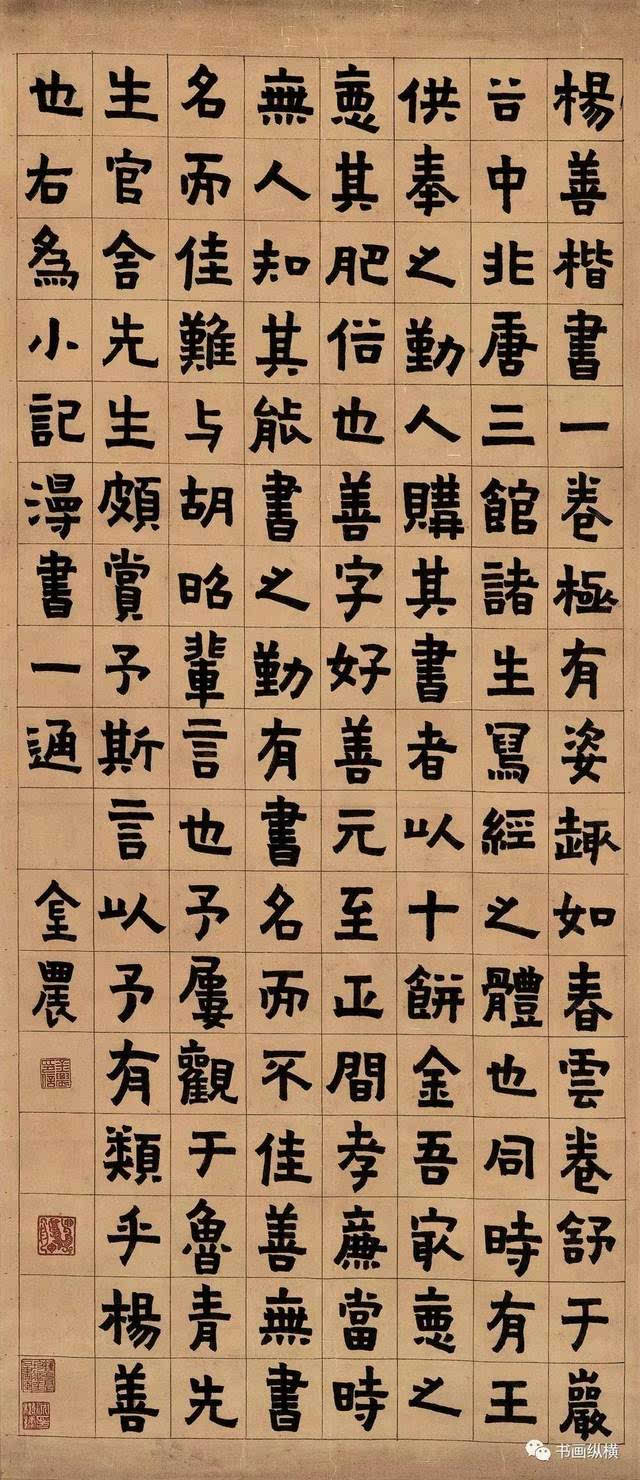 楊善楷書一卷極有姿趣如春雲卷舒于巖
谷中非唐三館諸生寫經之體也同時有王
供奉之勤人購其書者以十餅金吾冣惡之
惡其肥俗也善字好善元至正間孝廉當時
無人知其能書之勤有書名而不佳善無書
名而佳難与胡昭輩言也予屢觀于魯青先
生官舍先生頗賞予斯言以予有類乎楊善
也右為小記漫書一通 金農
书画纵横